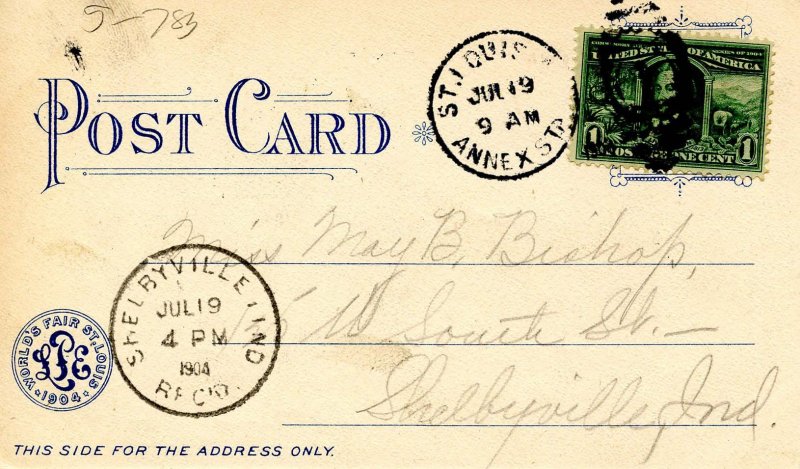 5-783
POST CARD
ST. LOUIS
JUL 19
9 AM
ANNEX STA
UNITED STATES OF AMERICA
SERIES OF 1904
1 ONE CENT 1
Miss May B. Bishop,
W. South St.
Shelbyville, Ind.
SHELBYVILLE IND
JUL 19
4 PM
1904
REC'D.
WORLD'S FAIR ST. LOUIS
LPE
1904
THIS SIDE FOR THE ADDRESS ONLY.